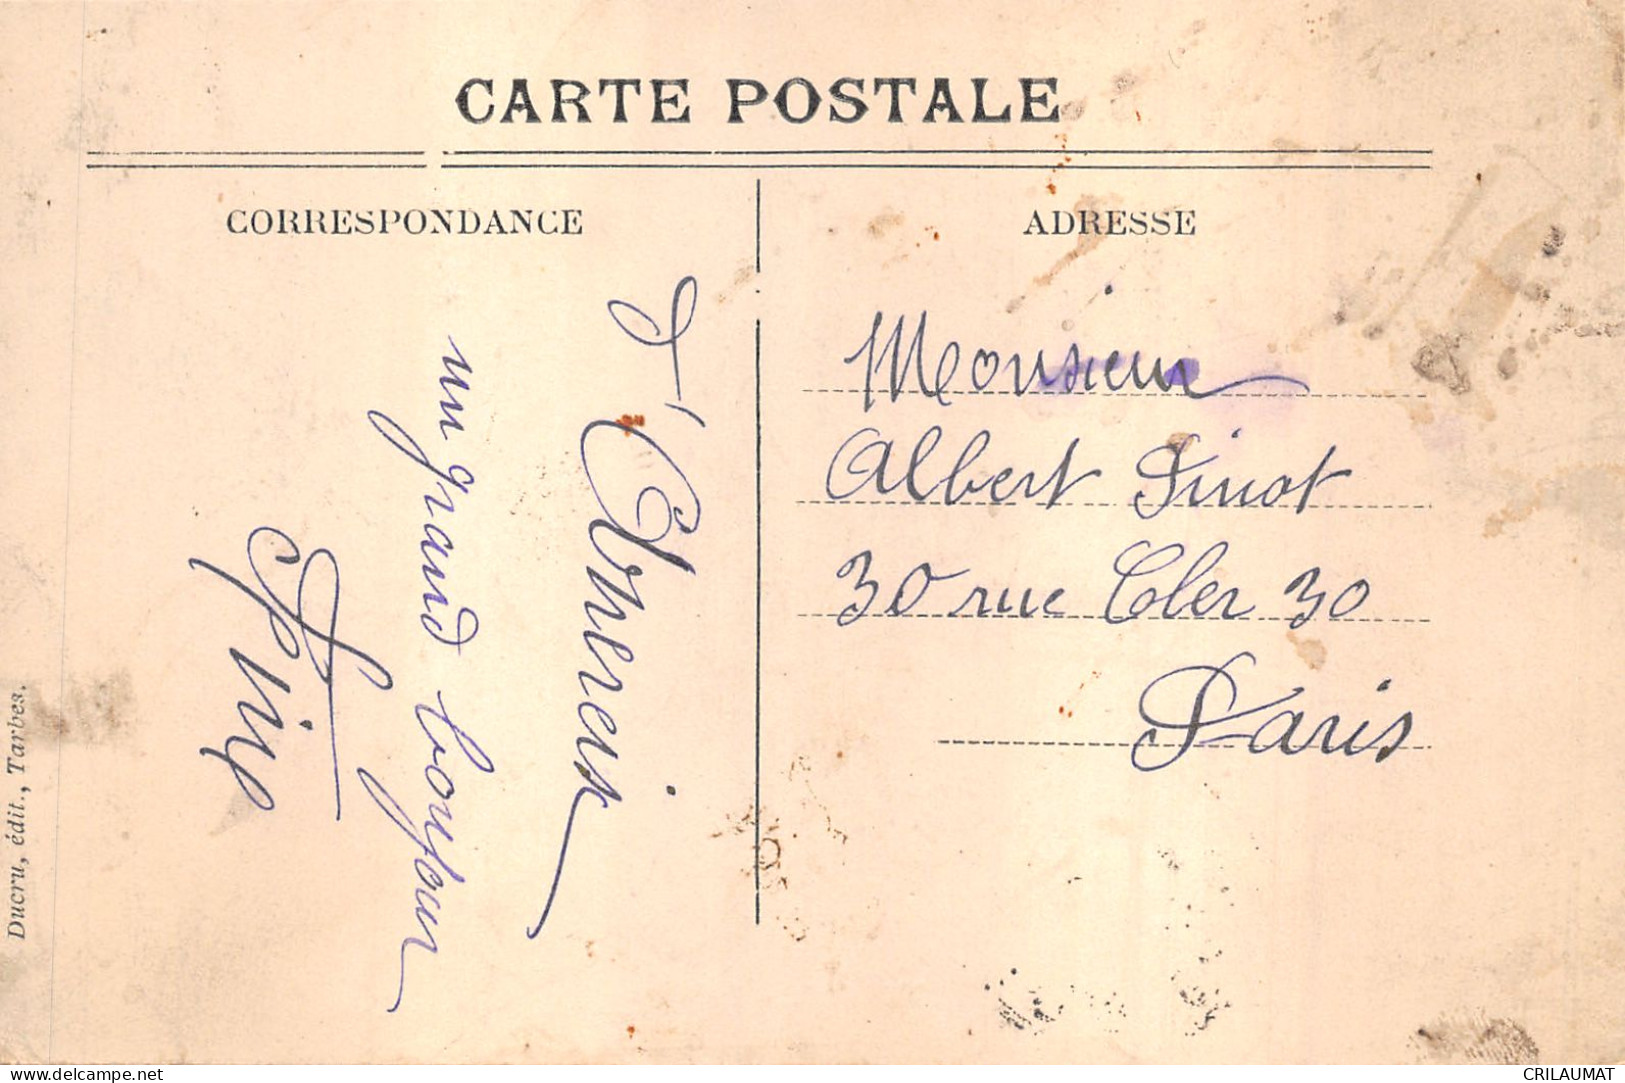 CARTE POSTALE
CORRESPONDANCE
ADRESSE
un grand bonjour
Monsieur
Albert Pinot
30 rue Cler 30
Paris
Ducru, édit., Tarbes.
delcampe.net
CRILAUMAT